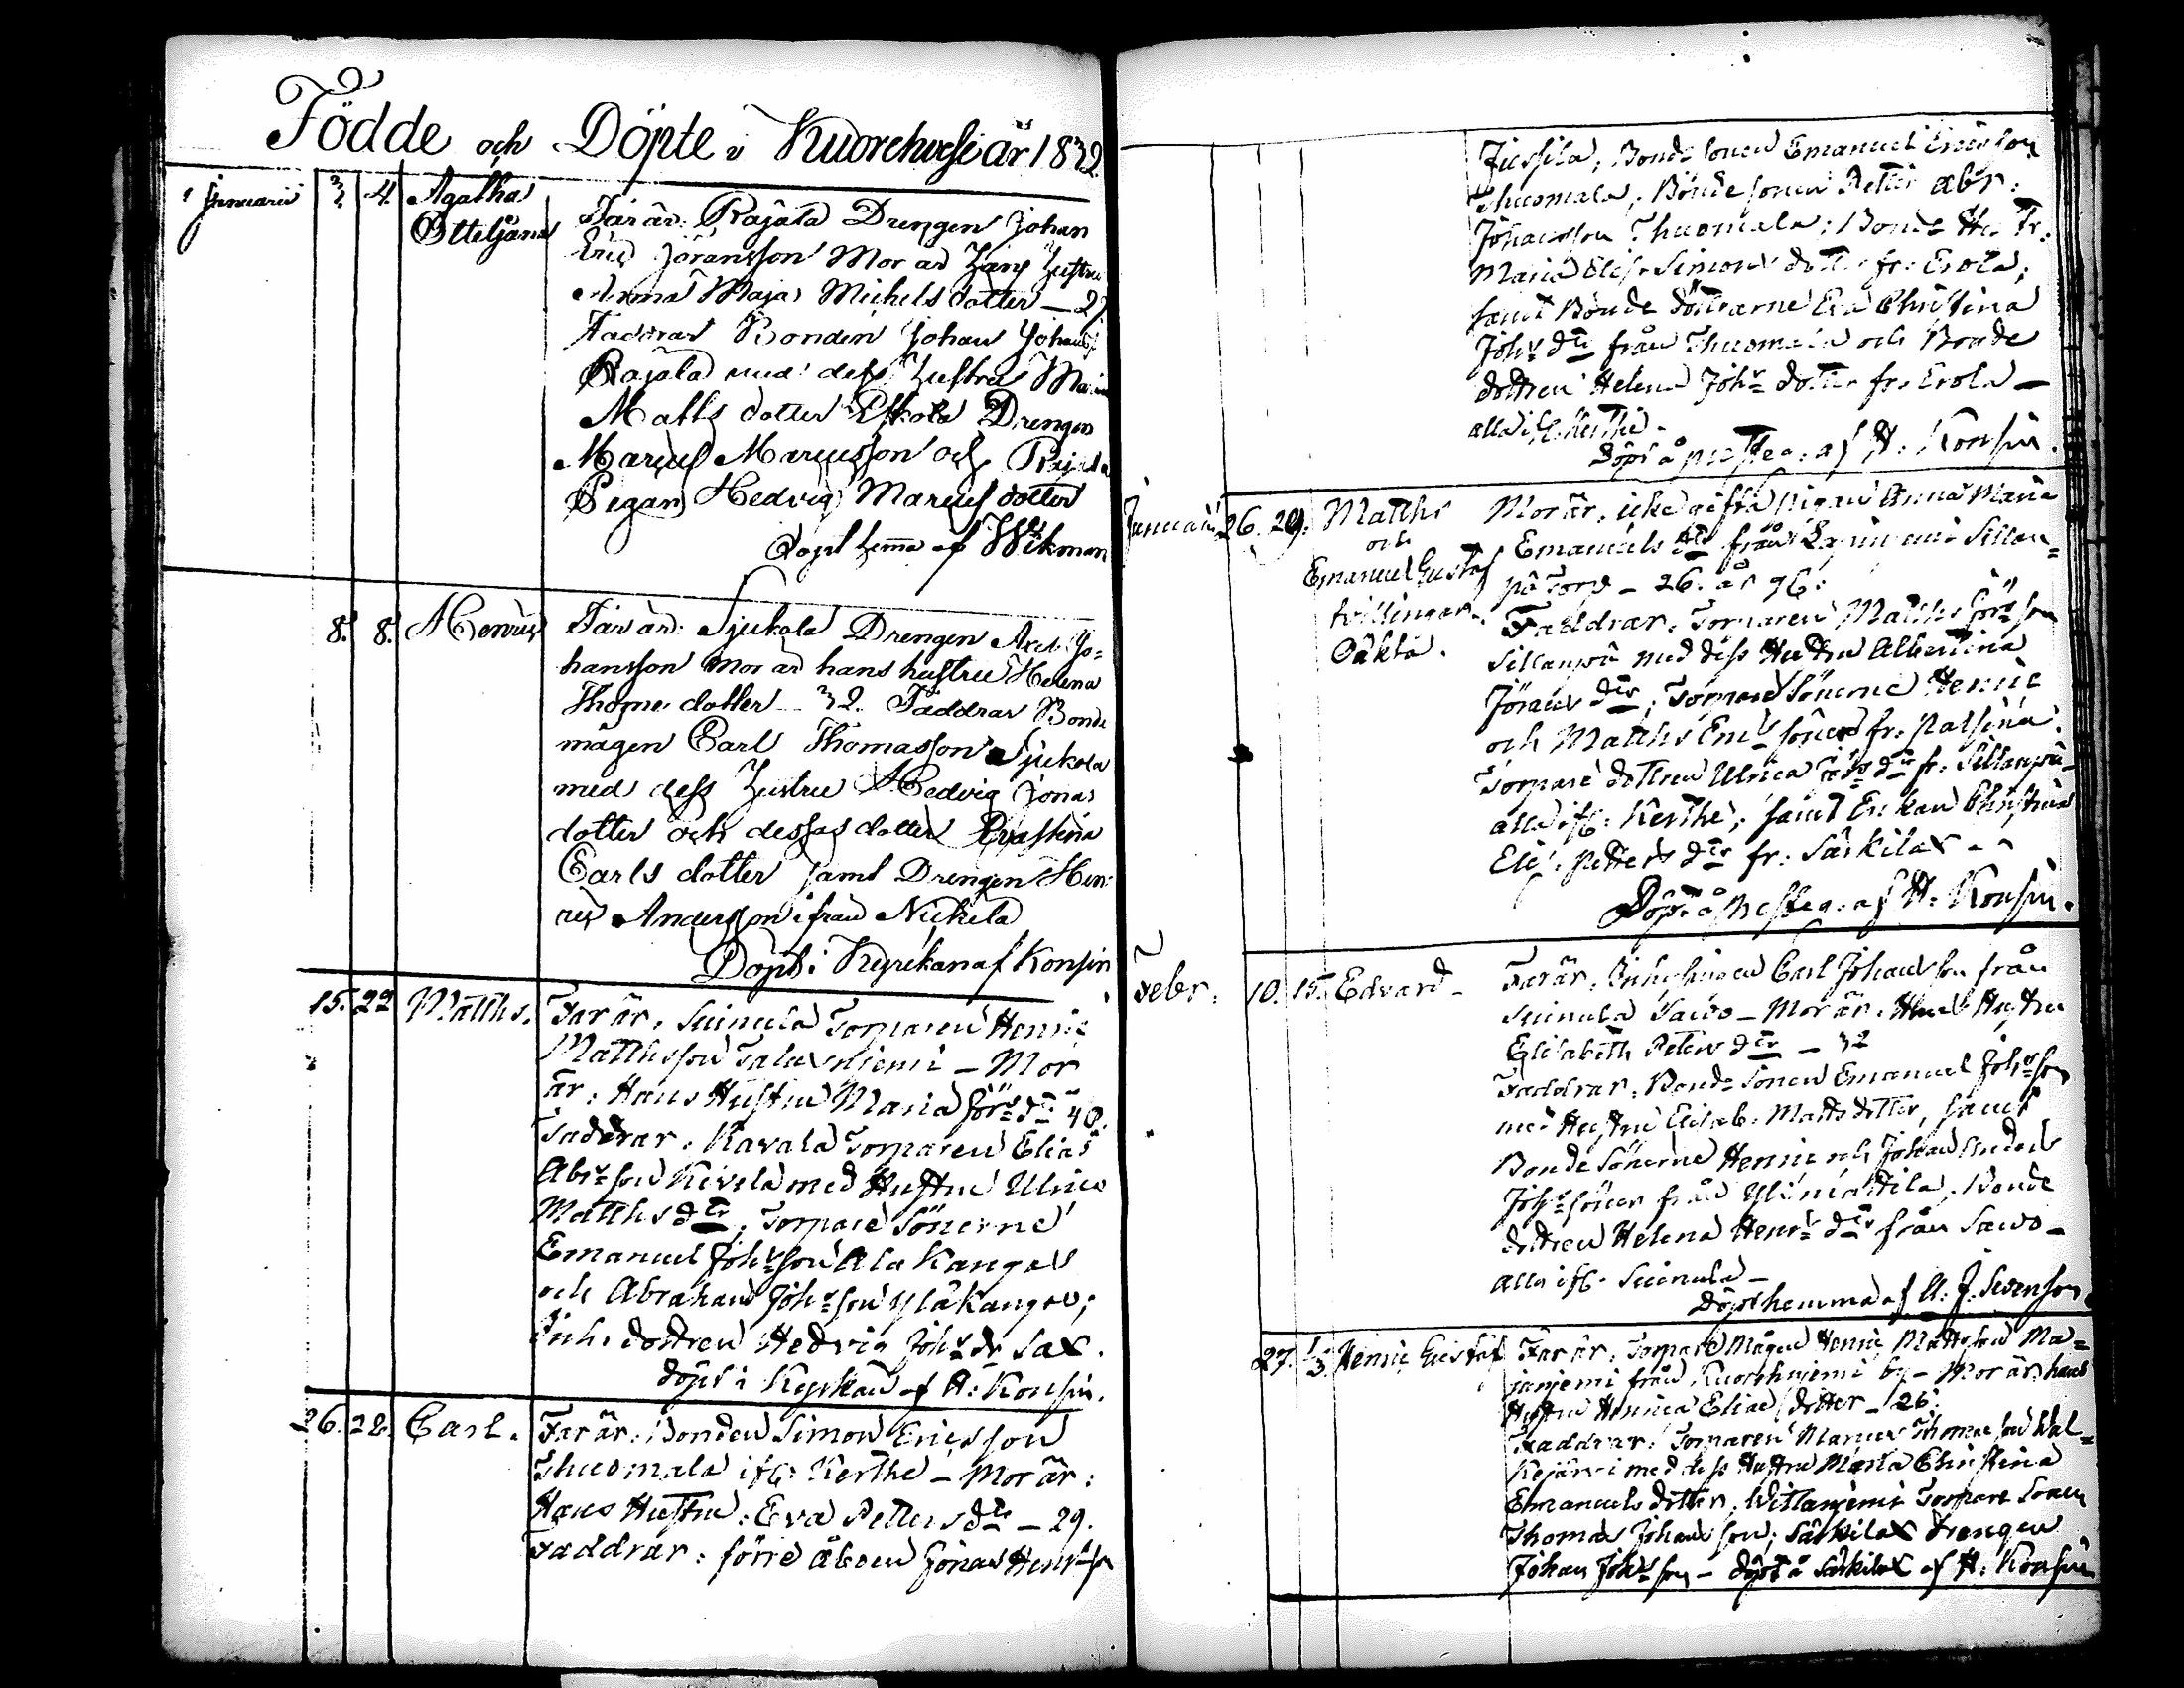 Födde och Döpte i Kuorehvesi år 1832
1 Januarii 3. 4. Agatha
Otteljana
Far är: Rajala Drengen Johan
Eric Jöransson Mor är Hans Hustru
Anna Maja Michels dotter — 27
Faddrar Bonden Johan Johans
Rajala med dess Hustru Maria
Matts dotter Eskola Drengen
Marcus Marcusson och Rajala
Pigan Hedvig Marcus dotter
Döpt hema af Wikman
8. 8. Henric Far är: Sjukola Drengen Axel Jo=
hansson Mor är hans hustru Helena
Thome dotter — 32. Faddrar Bonde
mågen Carl Thomasson Sjukola
med dess Hustru Hedvig Jonas
dotter och dessas dotter Evastina
Carls dotter samt Drengen Hen
ric Andersson ifrån Nickila
Döpt i Kyrkan af Konsin
15. 22 Matths. Far är, Suinula Torparen Henric
Matthsson Talasniemi — Mor
är: Hans Hustru Maria Jörs dr 40.
Faddrar: Kavala Torparen Elias
Abrsson Kivela med Hustru Ulrica
Matths dtr; Torpare Sönerne
Emanuel Johsson Ala Kangas
och Abraham Johsson Ylä Kangas;
Inh. dottren Hedvig Johs dr Sax.
döpt i Kyrkan af H: Konsin.
26. 28. Carl. Far är: Bonden Simon Ericsson
Thuomala ifr: Kerthe — Mor är:
Hans Hustru: Eva Petters dtr — 29.
Faddrar: förre åboen Jonas Henrsson
Jussila; Bonde sonen Emanuel Ericsson
Thuomala; Bonde sonen Petter Abr:
Johansson Thuomala; Bonde Hu Tr.
Maria Elis. Simons dotter fr: Erola;
samt Bonde döttrarne Eva Christina
Johs dtr från Thuomala och Bonde
dottren Helena Johs dotter fr. Erola —
alla ifr: Kerthe.
Döpt å af H: Konsin.
Januarii 26. 29. Matths
och
Emanuel Gustaf
tvillingar.
Oäkta.
Mor är, icke gifta pigan Anna Maria
Emanuels dtr från Sillan=
pä Torp — 26. år
Faddrar, Torparen Matths Jörsson
Sillanpä med dess Hustru Albertina
Jörans dtr; Torpare Sönerne Henric
och Matths Ems söner fr:
Torpare dottren Ulrica dtr fr: Sillanpä —
alla ifr: Kerthe; samt Enkan Christina
Elis: Petters dtr fr: Särkilax —
Döpt å af H: Konsin.
Febr. 10. 15. Edvard — Far är, Inhysingen Carl Johansson från
Suinula Sawo — Mor är: Hans Hustru
Elisabeth Peters dtr — 32
Faddrar: Bonde Sonen Emanuel Johsson
med Hustru Elisab: Matts dotter, samt
Bonde Sönerne Henric och Johan Anders
Johs söner från Ylimattila. Bonde
dottren Helena Henrs dtr från Sawo —
alla ifr. Suinula —
Döpt hemma af A: J. Svenson.
27. 1/3. Henric Gustaf Far är, Torpare Mågen Henric Mattsson Ma=
janjemi från Kuorehnjemi by — Mor är hans
Hustru Henrica Eliae dotter — 26:
Faddrar: Torparen Marcus Thomasson Wal=
kejärvi med dess Hustru Maria Christina
Emanuels dotter; Witlanjemi Torpare Sonen
Thomas Johansson; Särkilax Drengen
Johan Johsson — döpt å Särkilax af H: Konsin